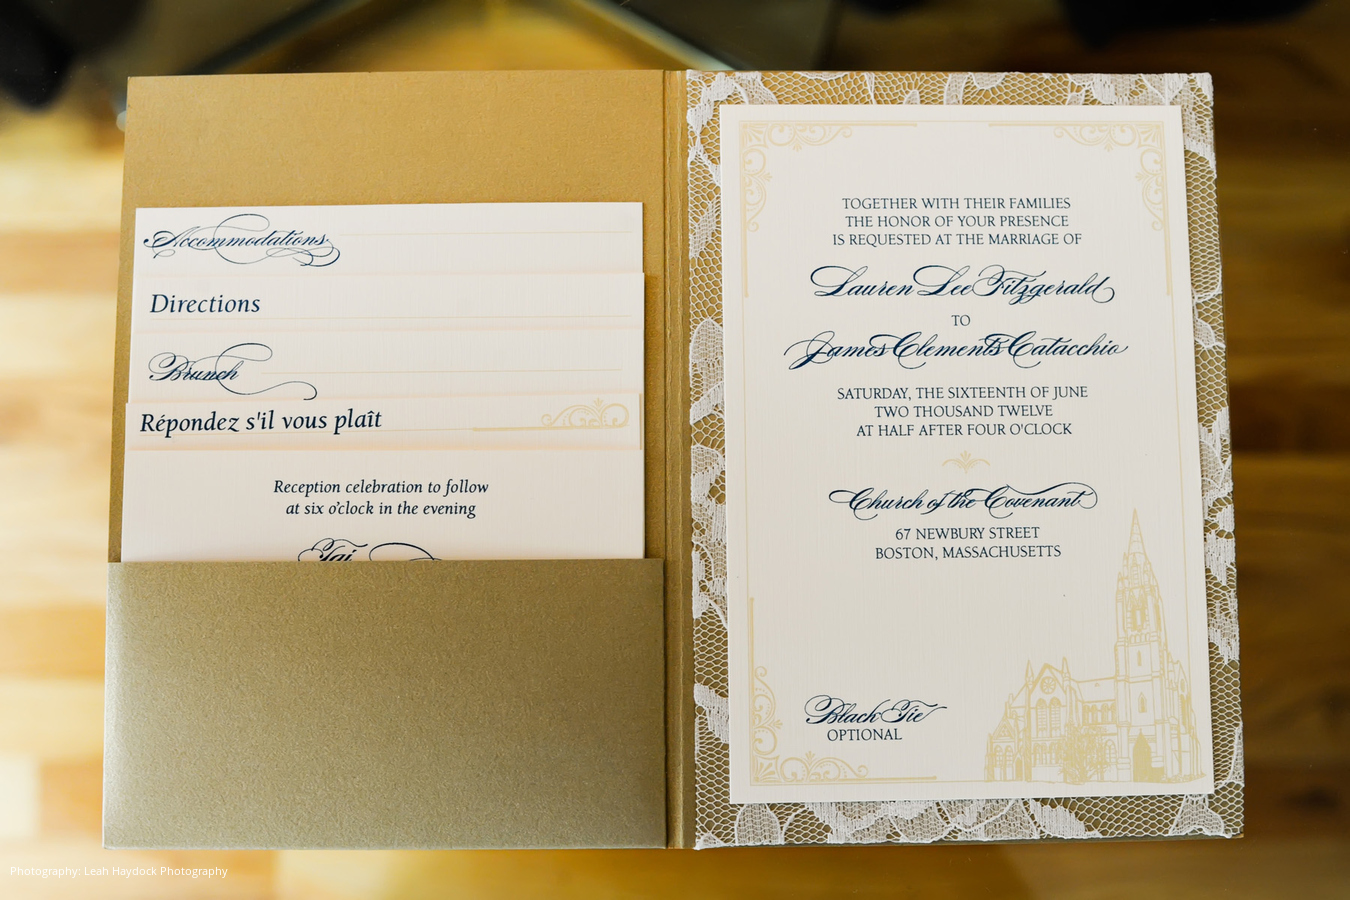 Accommodations
Directions
Brunch
Répondez s'il vous plaît
Reception celebration to follow
at six o'clock in the evening
TOGETHER WITH THEIR FAMILIES
THE HONOR OF YOUR PRESENCE
IS REQUESTED AT THE MARRIAGE OF
Lauren Lee Fitzgerald
TO
James Clements Catacchio
SATURDAY, THE SIXTEENTH OF JUNE
TWO THOUSAND TWELVE
AT HALF AFTER FOUR O'CLOCK
Church of the Covenant
67 NEWBURY STREET
BOSTON, MASSACHUSETTS
Black Tie
OPTIONAL
Photography: Leah Haydock Photography